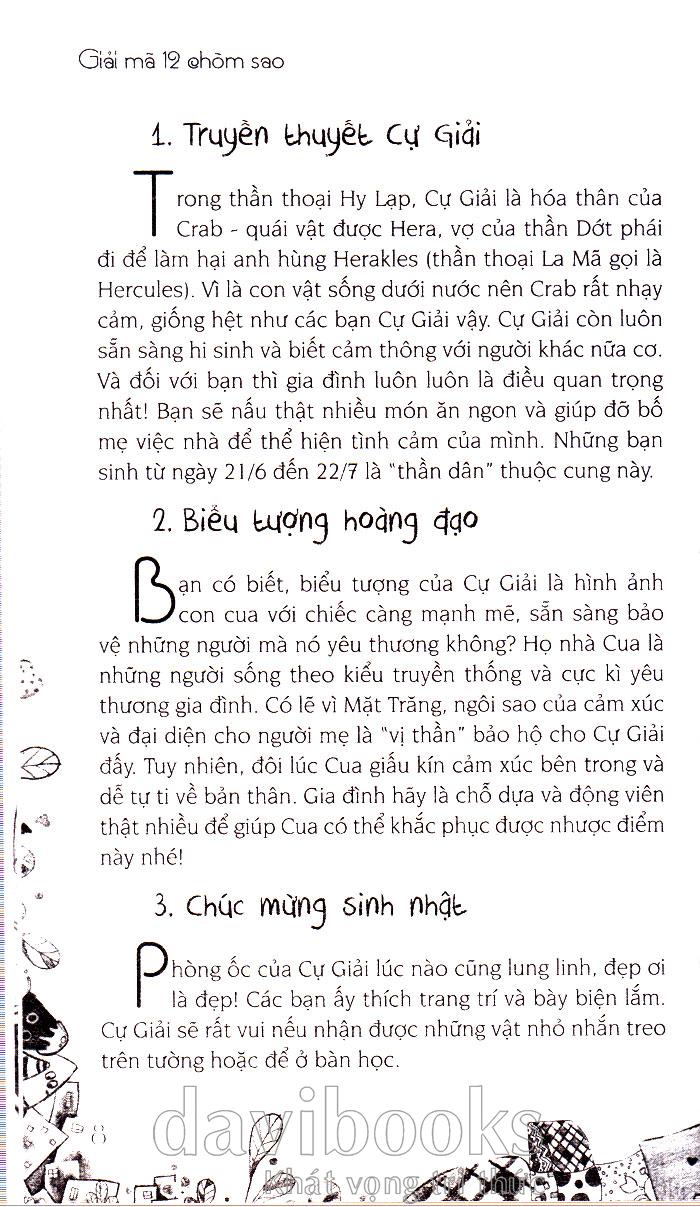 Giải mã 12 chòm sao
1. Truyền thuyết Cự Giải
Trong thần thoại Hy Lạp, Cự Giải là hóa thân của
Crab - quái vật được Hera, vợ của thần Dớt phái
đi để làm hại anh hùng Herakles (thần thoại La Mã gọi là
Hercules). Vì là con vật sống dưới nước nên Crab rất nhạy
cảm, giống hệt như các bạn Cự Giải vậy. Cự Giải còn luôn
sẵn sàng hi sinh và biết cảm thông với người khác nữa cơ.
Và đối với bạn thì gia đình luôn luôn là điều quan trọng
nhất! Bạn sẽ nấu thật nhiều món ăn ngon và giúp đỡ bố
mẹ việc nhà để thể hiện tình cảm của mình. Những bạn
sinh từ ngày 21/6 đến 22/7 là "thần dân" thuộc cung này.
2. Biểu tượng hoàng đạo
Bạn có biết, biểu tượng của Cự Giải là hình ảnh
con cua với chiếc càng mạnh mẽ, sẵn sàng bảo
vệ những người mà nó yêu thương không? Họ nhà Cua là
những người sống theo kiểu truyền thống và cực kì yêu
thương gia đình. Có lẽ vì Mặt Trăng, ngôi sao của cảm xúc
và đại diện cho người mẹ là "vị thần" bảo hộ cho Cự Giải
đấy. Tuy nhiên, đôi lúc Cua giấu kín cảm xúc bên trong và
dễ tự ti về bản thân. Gia đình hãy là chỗ dựa và động viên
thật nhiều để giúp Cua có thể khắc phục được nhược điểm
này nhé!
3. Chúc mừng sinh nhật
Phòng ốc của Cự Giải lúc nào cũng lung linh, đẹp ơi
là đẹp! Các bạn ấy thích trang trí và bày biện lắm.
Cự Giải sẽ rất vui nếu nhận được những vật nhỏ nhắn treo
trên tường hoặc để ở bàn học.
8
davibooks
khát vọng tri thức